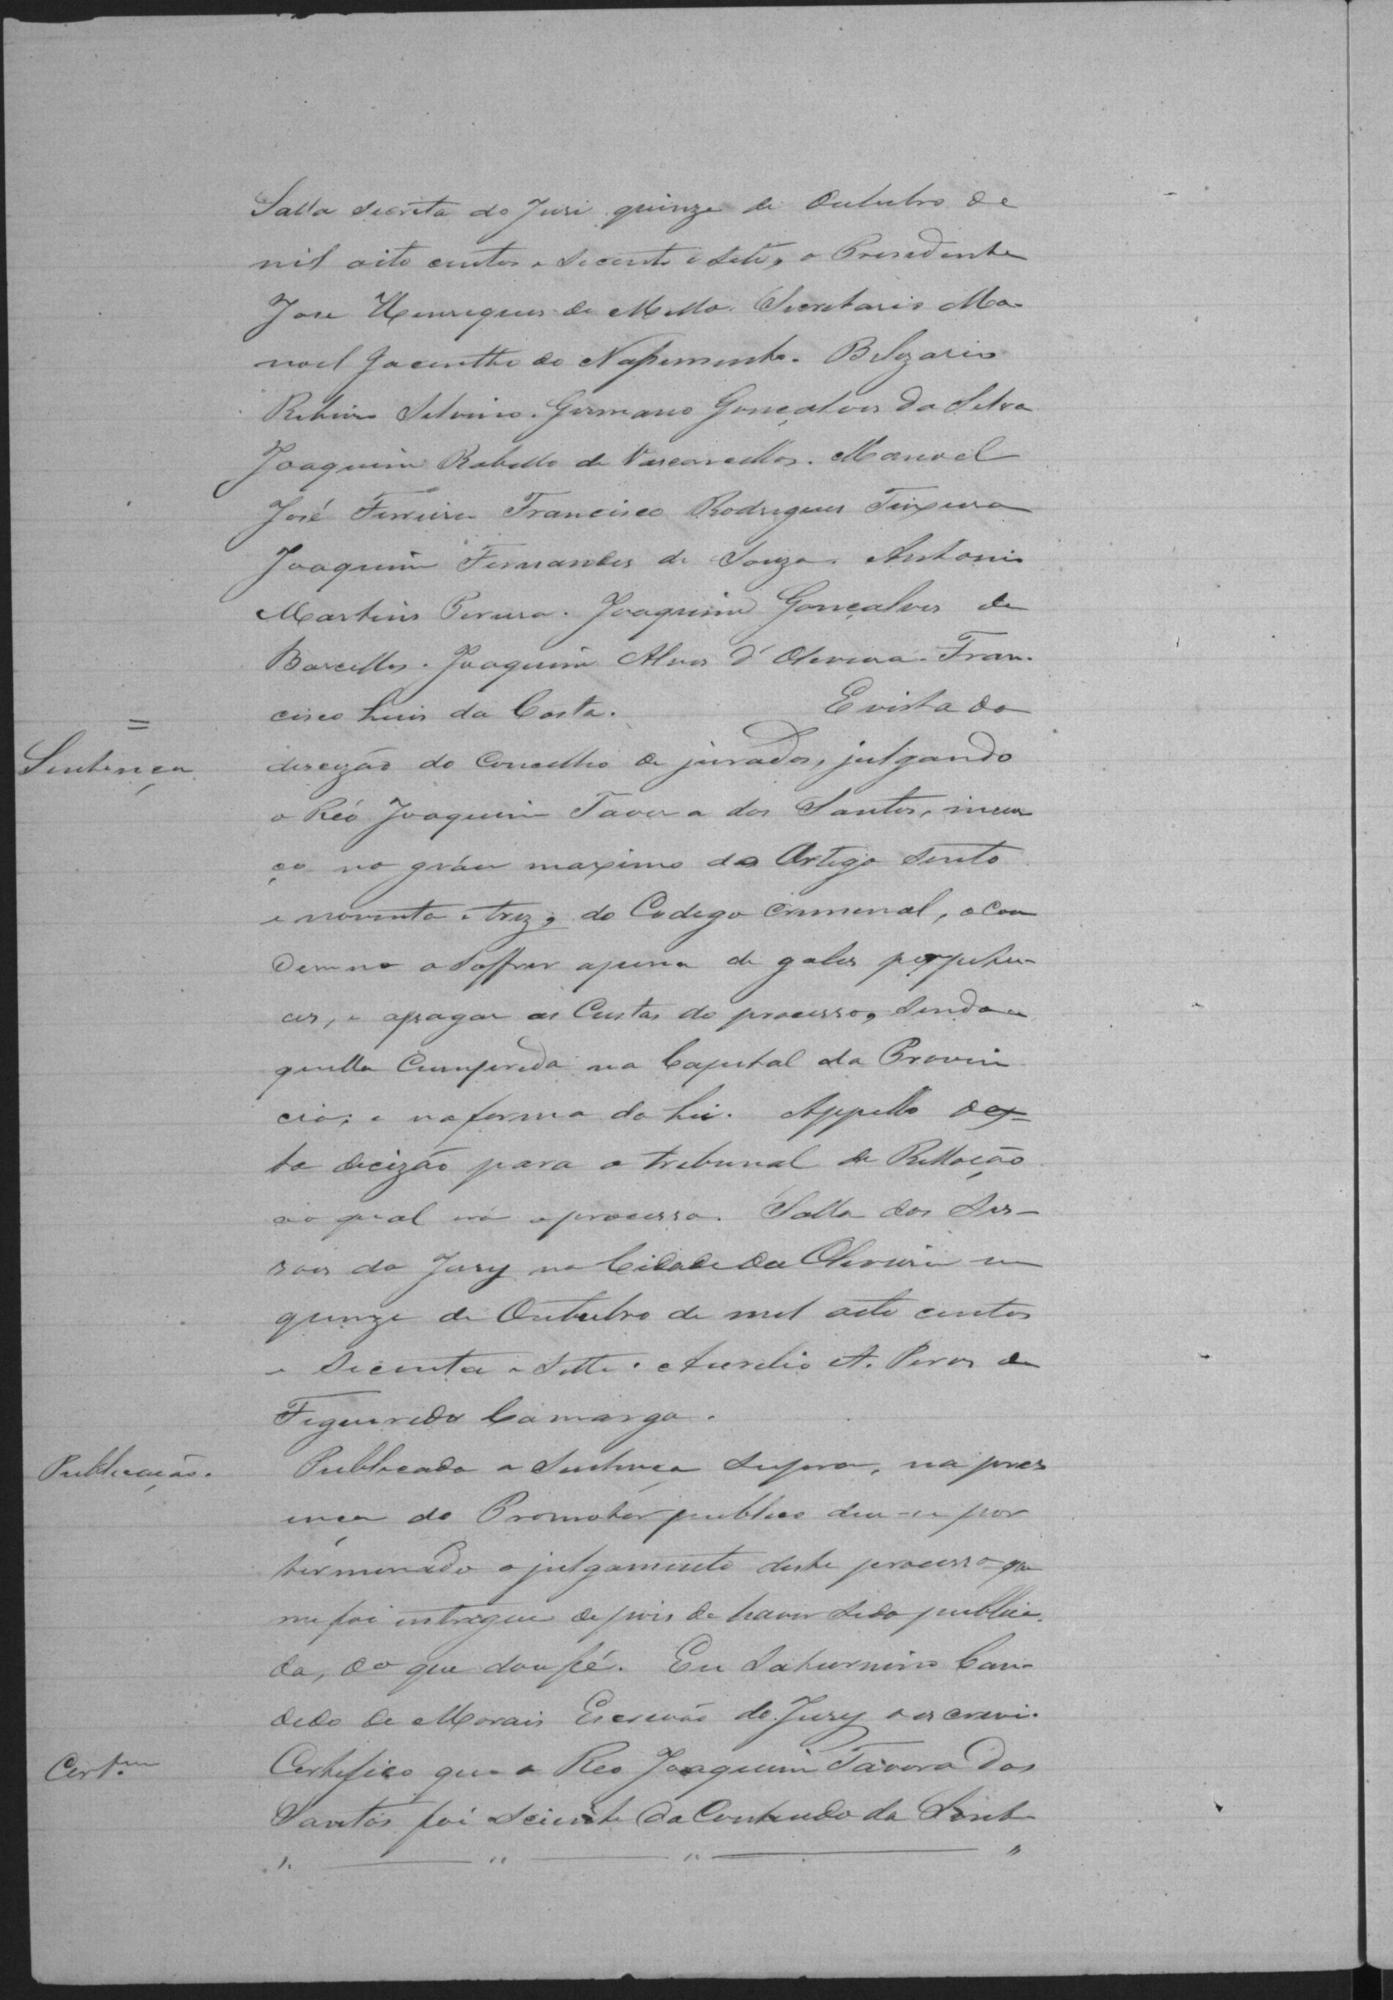 Salla secreta do Juri quinze de Outubro de
mil oito centos e secenta e sete, o Presedente
Jose Henriques de Mello. Secretario Ma-
noel Jacintho do Nascimento. Belizario
Ribeiro Silvino. Germano Gonçalves da Silva
Joaquim Rabello de Vasconcellos. Manoel
José Ferreira Francisco Rodrigues Teixeira
Joaquim Fernandes de Souza. Antonio
Martins Pereira. Joaquim Gonçalves de
Barcellos. Joaquim Alves d'Oliveira. Fran-
cisco Luis da Costa. E vista da
=
Sentença
decizão do Concelho de jurados, julgando
o Réo Joaquim Tavora dos Santos, incur
ço no gráu maximo do Artigo sento
e noventa e trez, do Codego Criminal, o con
demno a soffrer apena de gales perpetu-
as, e apagar as Custas do processo, sendo a
quella Cumpreda na Capital da Provin
cia; e na forma da Lei. Appello des-
ta decizão para o trebunal da Rellação
ao qual irá o processo. Salla das Ses-
soes do Jury na Cidade da Oliveira em
quinze de Outubro de mil oito centos
e secenta e sette. Aurelio A. Peres de
Figueiredo Camargo.
Publicação.
Publicada a sentença supra, na pres
ença do Promotor publico deu-se por
terminado o julgamento deste processo que
me foi entregue depois de haver sido publica-
da, do que dou fé. Eu Saturnino Can-
dido de Morais Escrivão do Jury o escrevi.
Cert.am
Certefico que o Reo Joaquim Tavora dos
Santos foi sciente do Contheudo da Sent
" — " — " — "